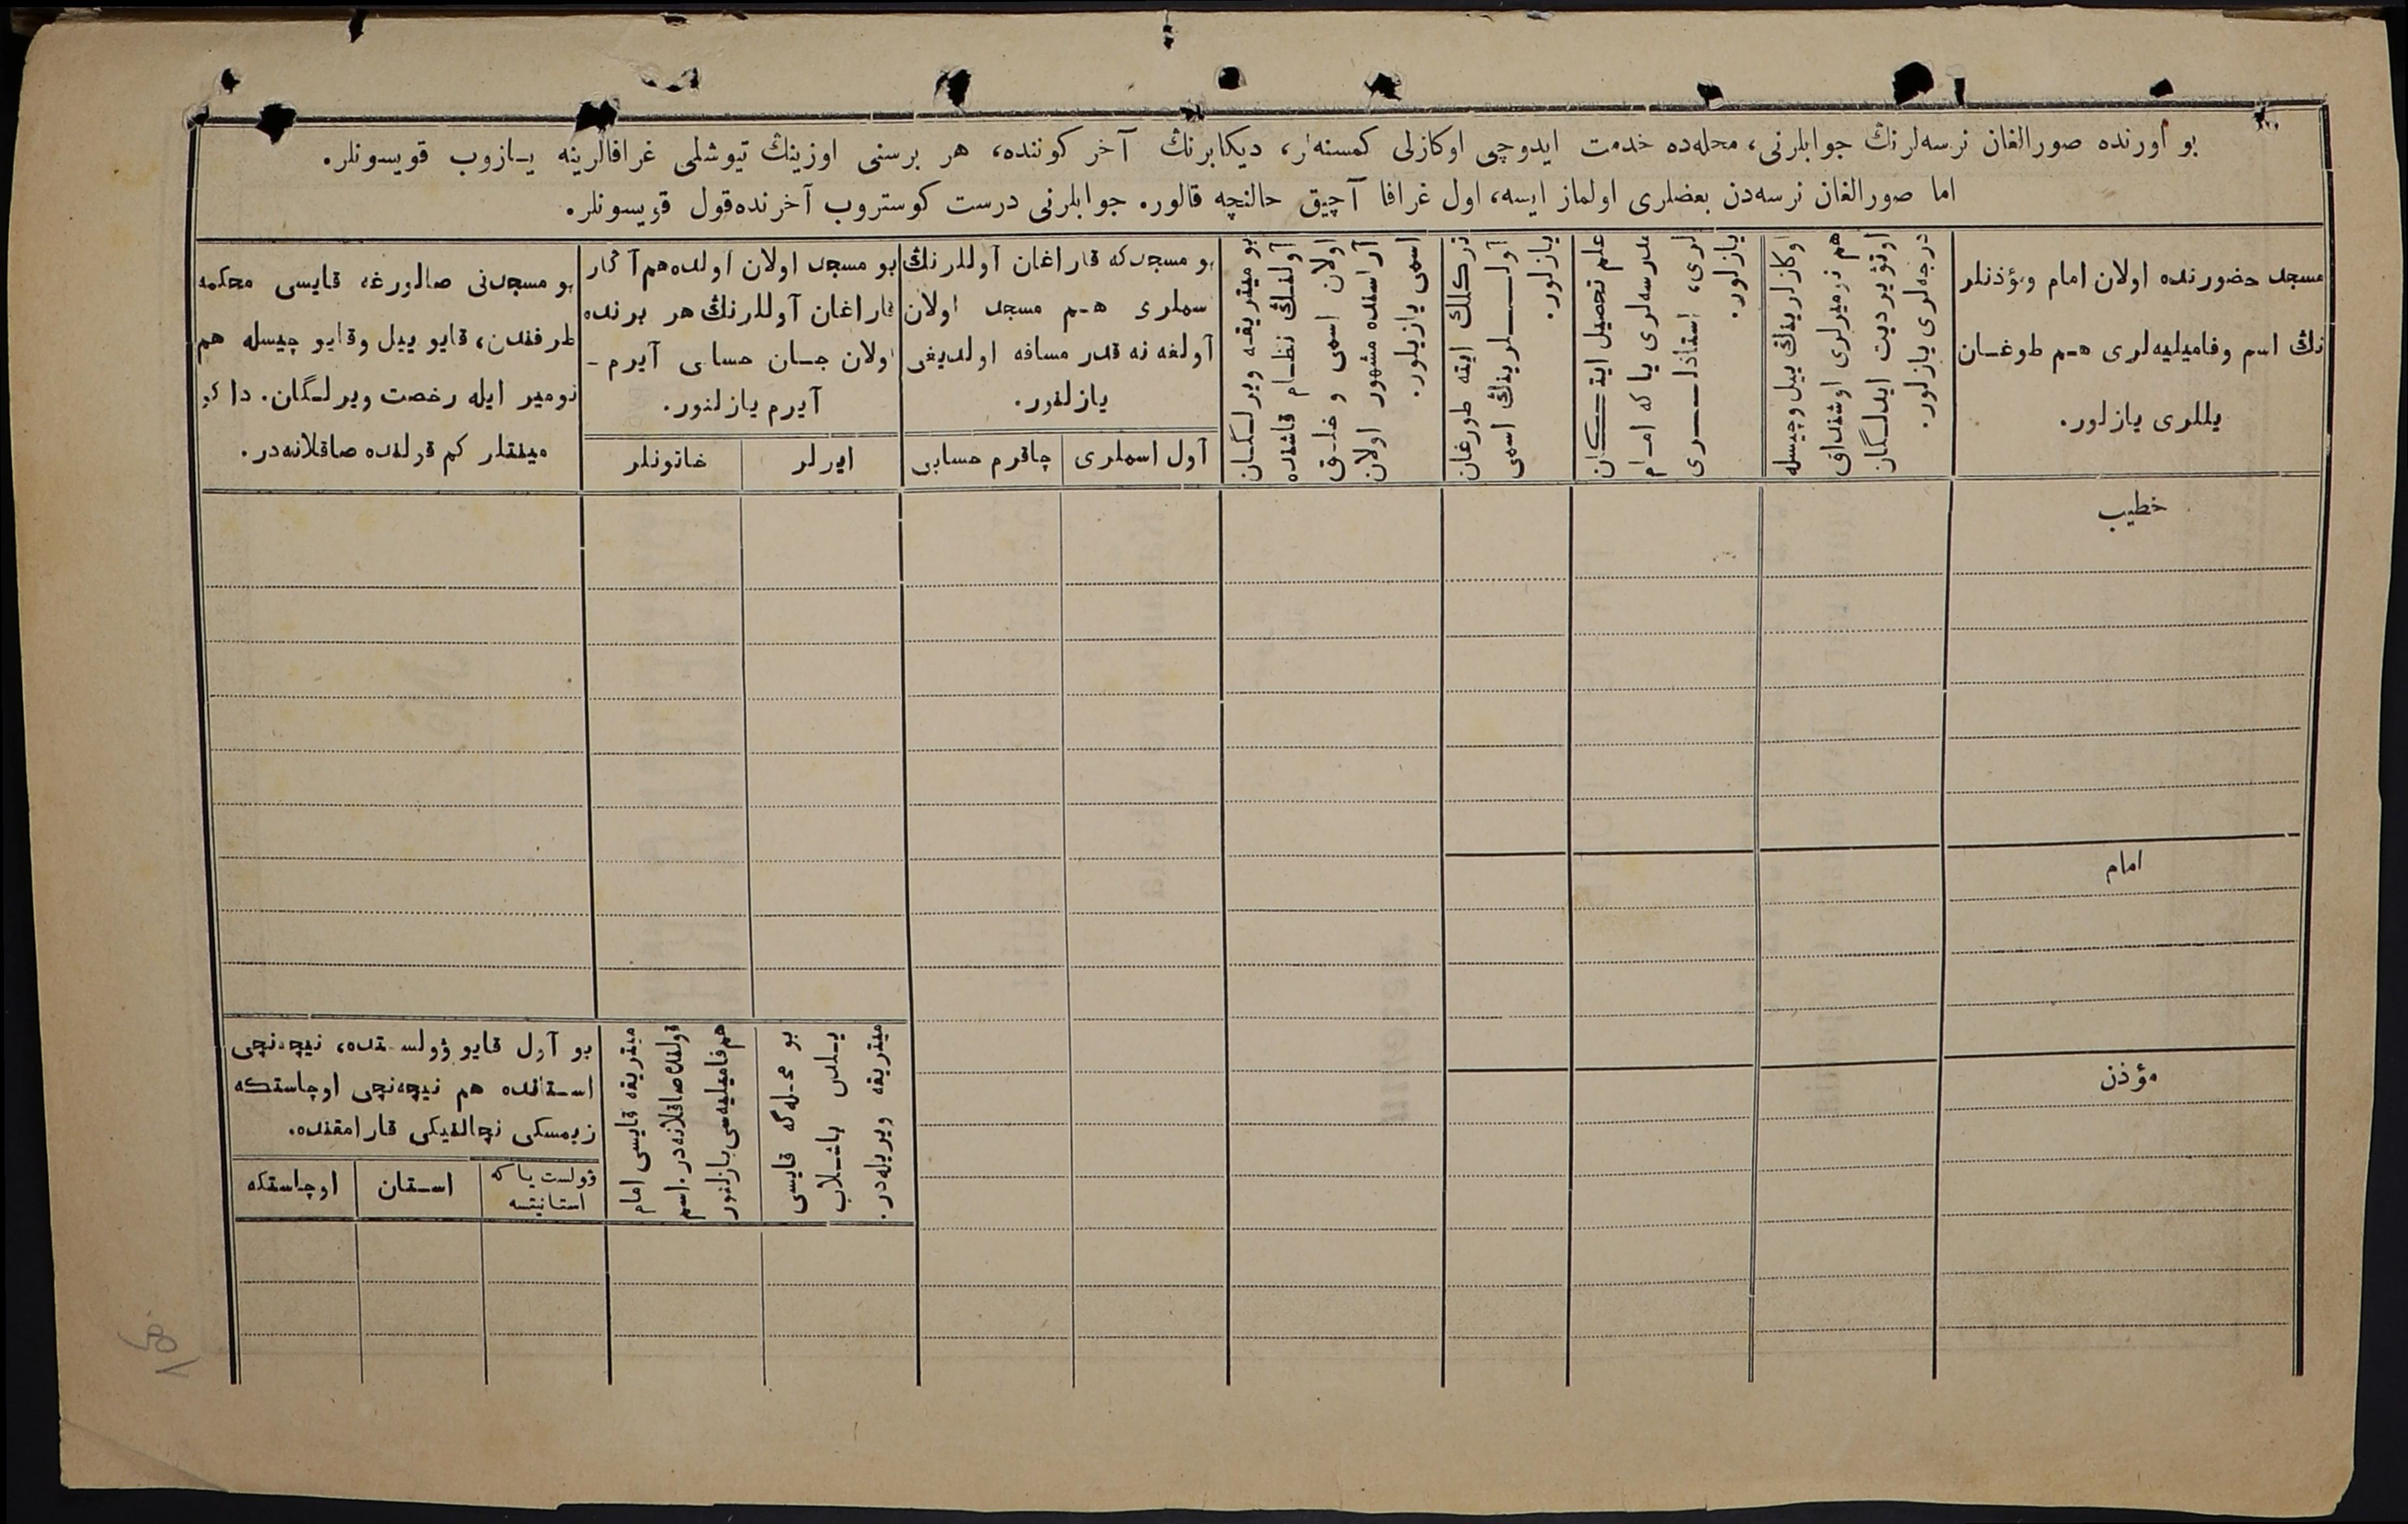 بو اورنده صورالغان نرسه‌لرنڭ جوابلرنی، محله‌ده خدمت ایدوچی اوکازلی کمسنه‌لر، دیکابرنڭ آخر کوننده، هر برسنی اوزینڭ تیوشلی غرافالرینه یازوب قویسونلر.
اما صورالغان نرسه‌دن بعضلری اولماز ایسه، اول غرافا آچیق حالنچه قالور. جوابلرنی درست کوستروب آخرنده قول قویسونلر.
مسجد حضورنده اولان امام ومؤذنلر
نڭ اسم وفامیلیه‌لری هم طوغان
یللری یازلور.
اوکازلرینڭ ییل وچیسله
هم نومیرلری اوشنداق
اوتؤیردیت ایدلگان
درجه‌لری یازلور.
علم تحصیل ایتکان
مدرسه‌لری یا که امام
لری، استاذلری
یازلور.
نزکلك ایته طورغان
آوللرینڭ اسمی
یازلور.
بو میتریقه ویرلگان
آولنڭ نظام قاشنده
اولان اسمی و خلق
آراسنده مشهور اولان
اسمی یازیلور.
بو مسجدکه قاراغان آوللرنڭ
اسملری هم مسجد اولان
آولغه نه قدر مسافه اولدیغی
یازلنور.
آول اسملری
چاقرم حسابی
بو مسجد اولان اولده هم آڭار
قاراغان آوللرنڭ هر برنده
اولان جان حسابی آیرم -
آیرم یازلنور.
ایرلر
خاتونلر
بو مسجدنی صالورغه قایسی محکمه
طرفندن، قایو ییل وقایو چیسله هم
نومیر ایله رخصت ویرلگان. داکو
مینتلر کم قولنده صاقلانه‌در.
خطیب
امام
مؤذن
بو محله‌گه قایسی
یلدن باشلاب
میتریقه ویریله‌در.
میتریقه قایسی امام
قولنده صاقلانه‌در. اسم
هم فامیلیه‌سی یازلنور
بو آول قایو ؤولستده، نیچه‌نچی
استانده هم نیچه‌نچی اوچاستکه
زیمسکی نچالنیکی قارامقنده.
ؤولست یا که
استانیتسه
استان
اوچاستکه